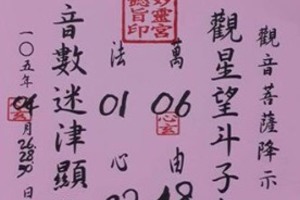 觀音菩薩降示
觀星望斗子
萬 06 由 18
心玄
靈宮
旨印
法 01 心
音數迷津顯
一〇五年 04 月 26 28 30 日